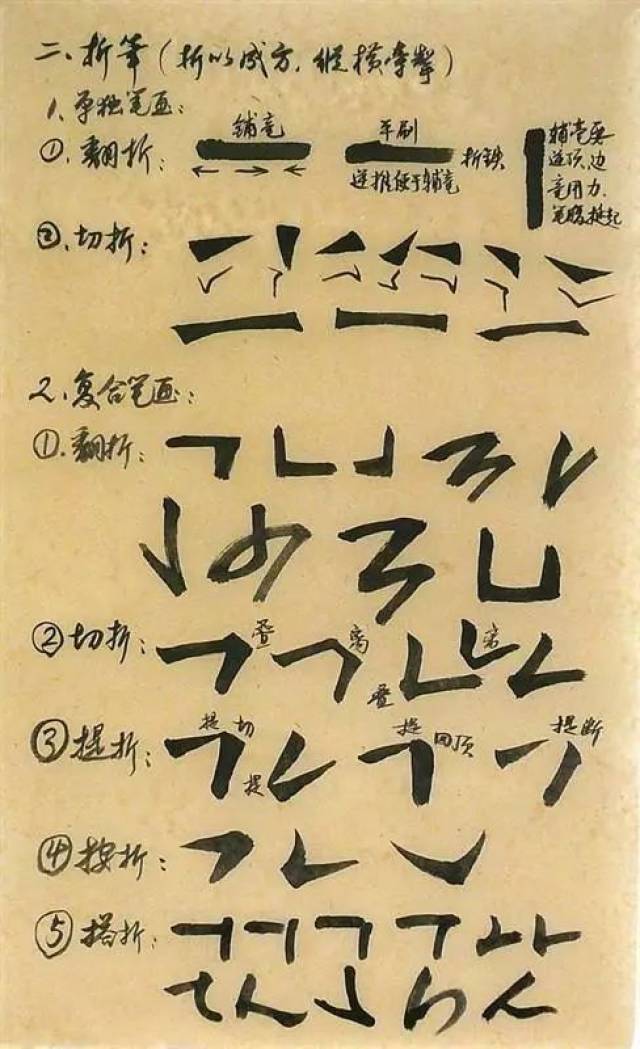 二、折笔(折以成方,纵横牵掣)
1、单独笔画:
①、翻折:
铺毫
平刷
逆推便于铺毫
折铁
铺毫要
逆顶,边
毫用力,
笔腹挺起
②、切折:
2、复合笔画:
①、翻折:
②切折:
叠
离
叠
离
③提折:
提 切
提
提 回顶
提断
④按折:
⑤搭折: